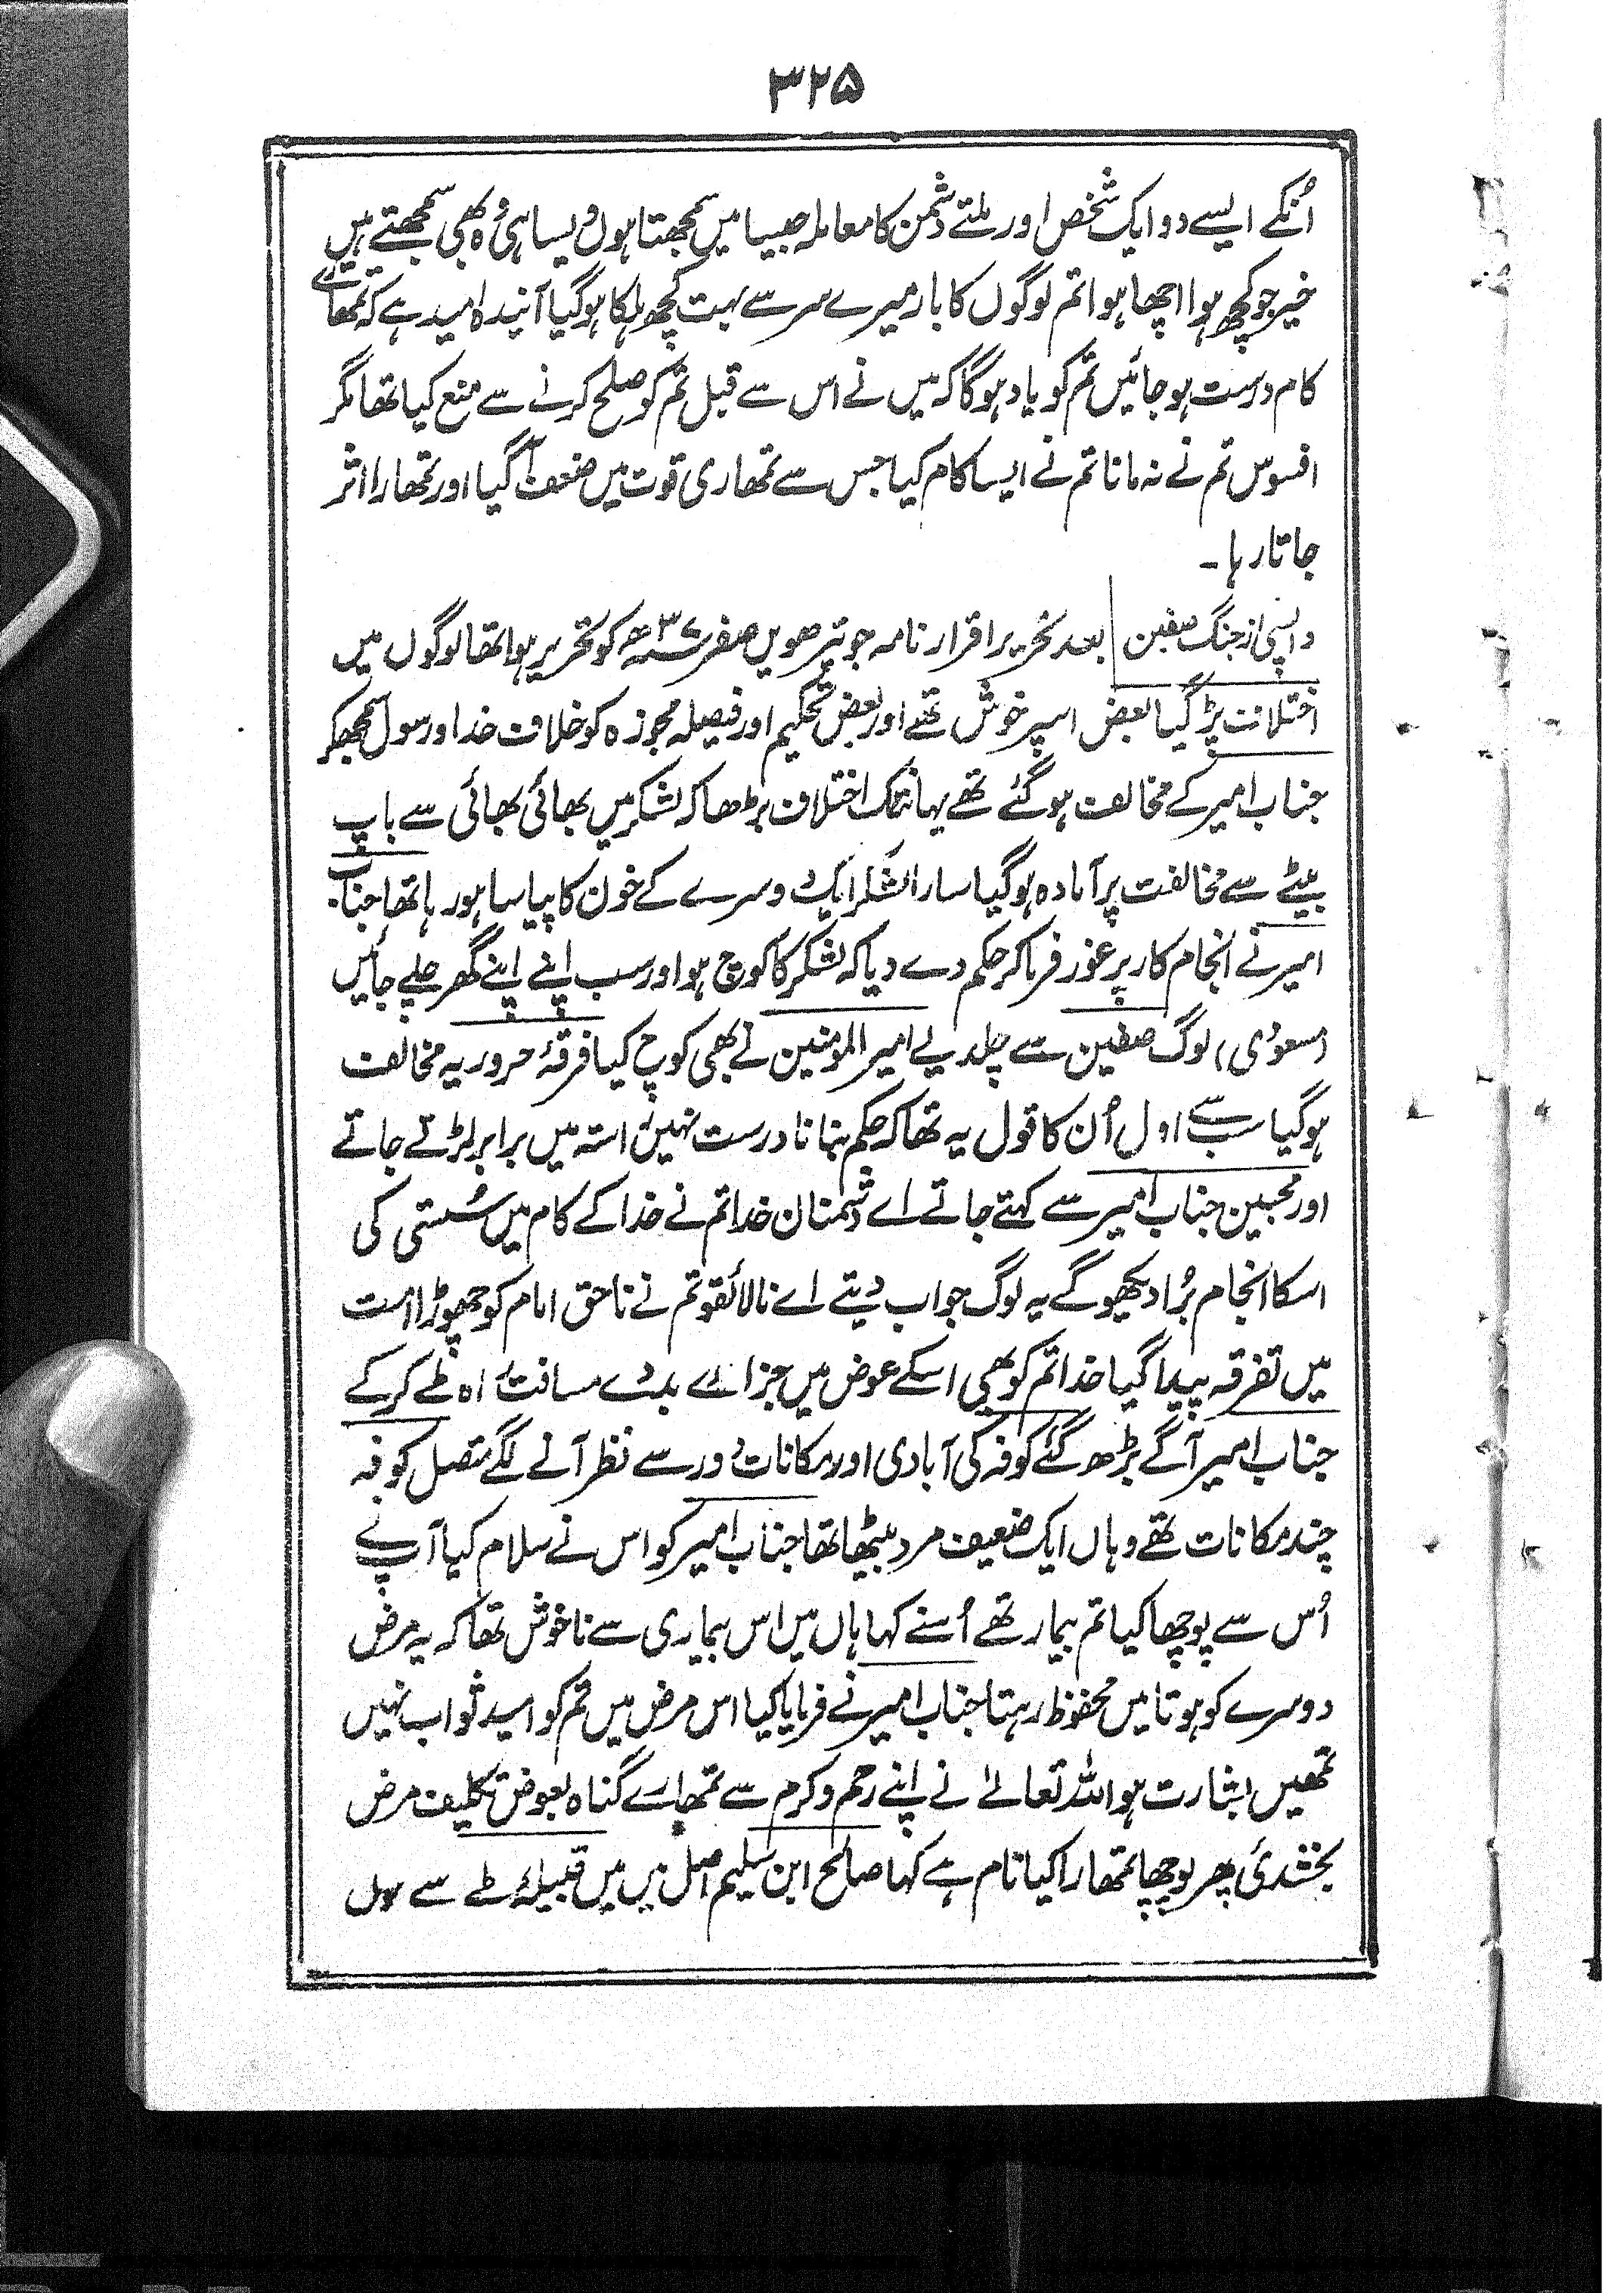 ۳۲۵
اُنکے ایسے دو ایک شخص اور ملتے دشمن کا معاملہ جیسا میں سمجھتا ہوں ویسا ہی وہ بھی سمجھتے ہیں
خیر جو کچھ ہوا اچھا ہوا تم لوگوں کا بار میرے سر سے بہت کچھ ہلکا ہو گیا آئندہ امید ہے کہ تمھارے
کام درست ہو جائیں تم کو یاد ہوگا کہ میں نے اس سے قبل تم کو صلح کرنے سے منع کیا تھا مگر
افسوس تم نے نہ مانا تم نے ایسا کام کیا جس سے تمھاری قوت میں ضعف آگیا اور تمھارا اثر
جاتا رہا ۔
واپسی از جنگ صفین بعد تحریر اقرار نامہ جو تیرھویں صفر ۳۷ھ کو تحریر ہوا تھا لوگوں میں
اختلاف پڑ گیا بعض اسپر خوش تھے اور بعض تحکیم اور فیصلہ مجوزہ کو خلاف خدا و رسول سمجھکر
جناب امیر کے مخالف ہو گئے تھے یہانتک اختلاف بڑھا کہ لشکر میں بھائی بھائی سے باپ
بیٹے سے مخالفت پر آمادہ ہو گیا سارا لشکر ایک دوسرے کے خون کا پیاسا ہو رہا تھا جناب
امیر نے انجام کار پر غور فرما کر حکم دے دیا کہ لشکر کا کوچ ہو اور سب اپنے اپنے گھر چلے جائیں
(مسعودی) لوگ صفین سے چلدیے امیر المومنین نے بھی کوچ کیا فرقۂ حروریہ مخالف
ہو گیا سب سے اول اُن کا قول یہ تھا کہ حکم بنانا درست نہیں راستہ میں برابر لڑتے جاتے
اور محبین جناب امیر سے کہتے جاتے اے دشمنان خدا تم نے خدا کے کام میں سُستی کی
اسکا انجام بُرا دیکھو گے یہ لوگ جواب دیتے اے نالائقو تم نے ناحق امام کو چھوڑا امت
میں تفرقہ پیدا کیا خدا تم کو بھی اسکے عوض میں جزا دے بعد مسافت راہ طے کر کے
جناب امیر آگے بڑھ گئے کوفہ کی آبادی اور مکانات دور سے نظر آنے لگے متصل کوفہ
چند مکانات تھے وہاں ایک ضعیف مرد بیٹھا تھا جناب امیر کو اس نے سلام کیا آپ نے
اُس سے پوچھا کیا تم بیمار تھے اُسنے کہا ہاں میں اس بیماری سے ناخوش تھا کہ یہ مرض
دوسرے کو ہوتا میں محفوظ رہتا جناب امیر نے فرمایا کیا اس مرض میں تم کو امید ثواب نہیں
تمھیں بشارت ہو اللہ تعالےٰ نے اپنے رحم و کرم سے تمھارے گناہ بعوض تکلیف مرض
بخشدئ پھر پوچھا تمھارا کیا نام ہے کہا صالح ابن سلیم اصل میں میں قبیلۂ طے سے ہوں